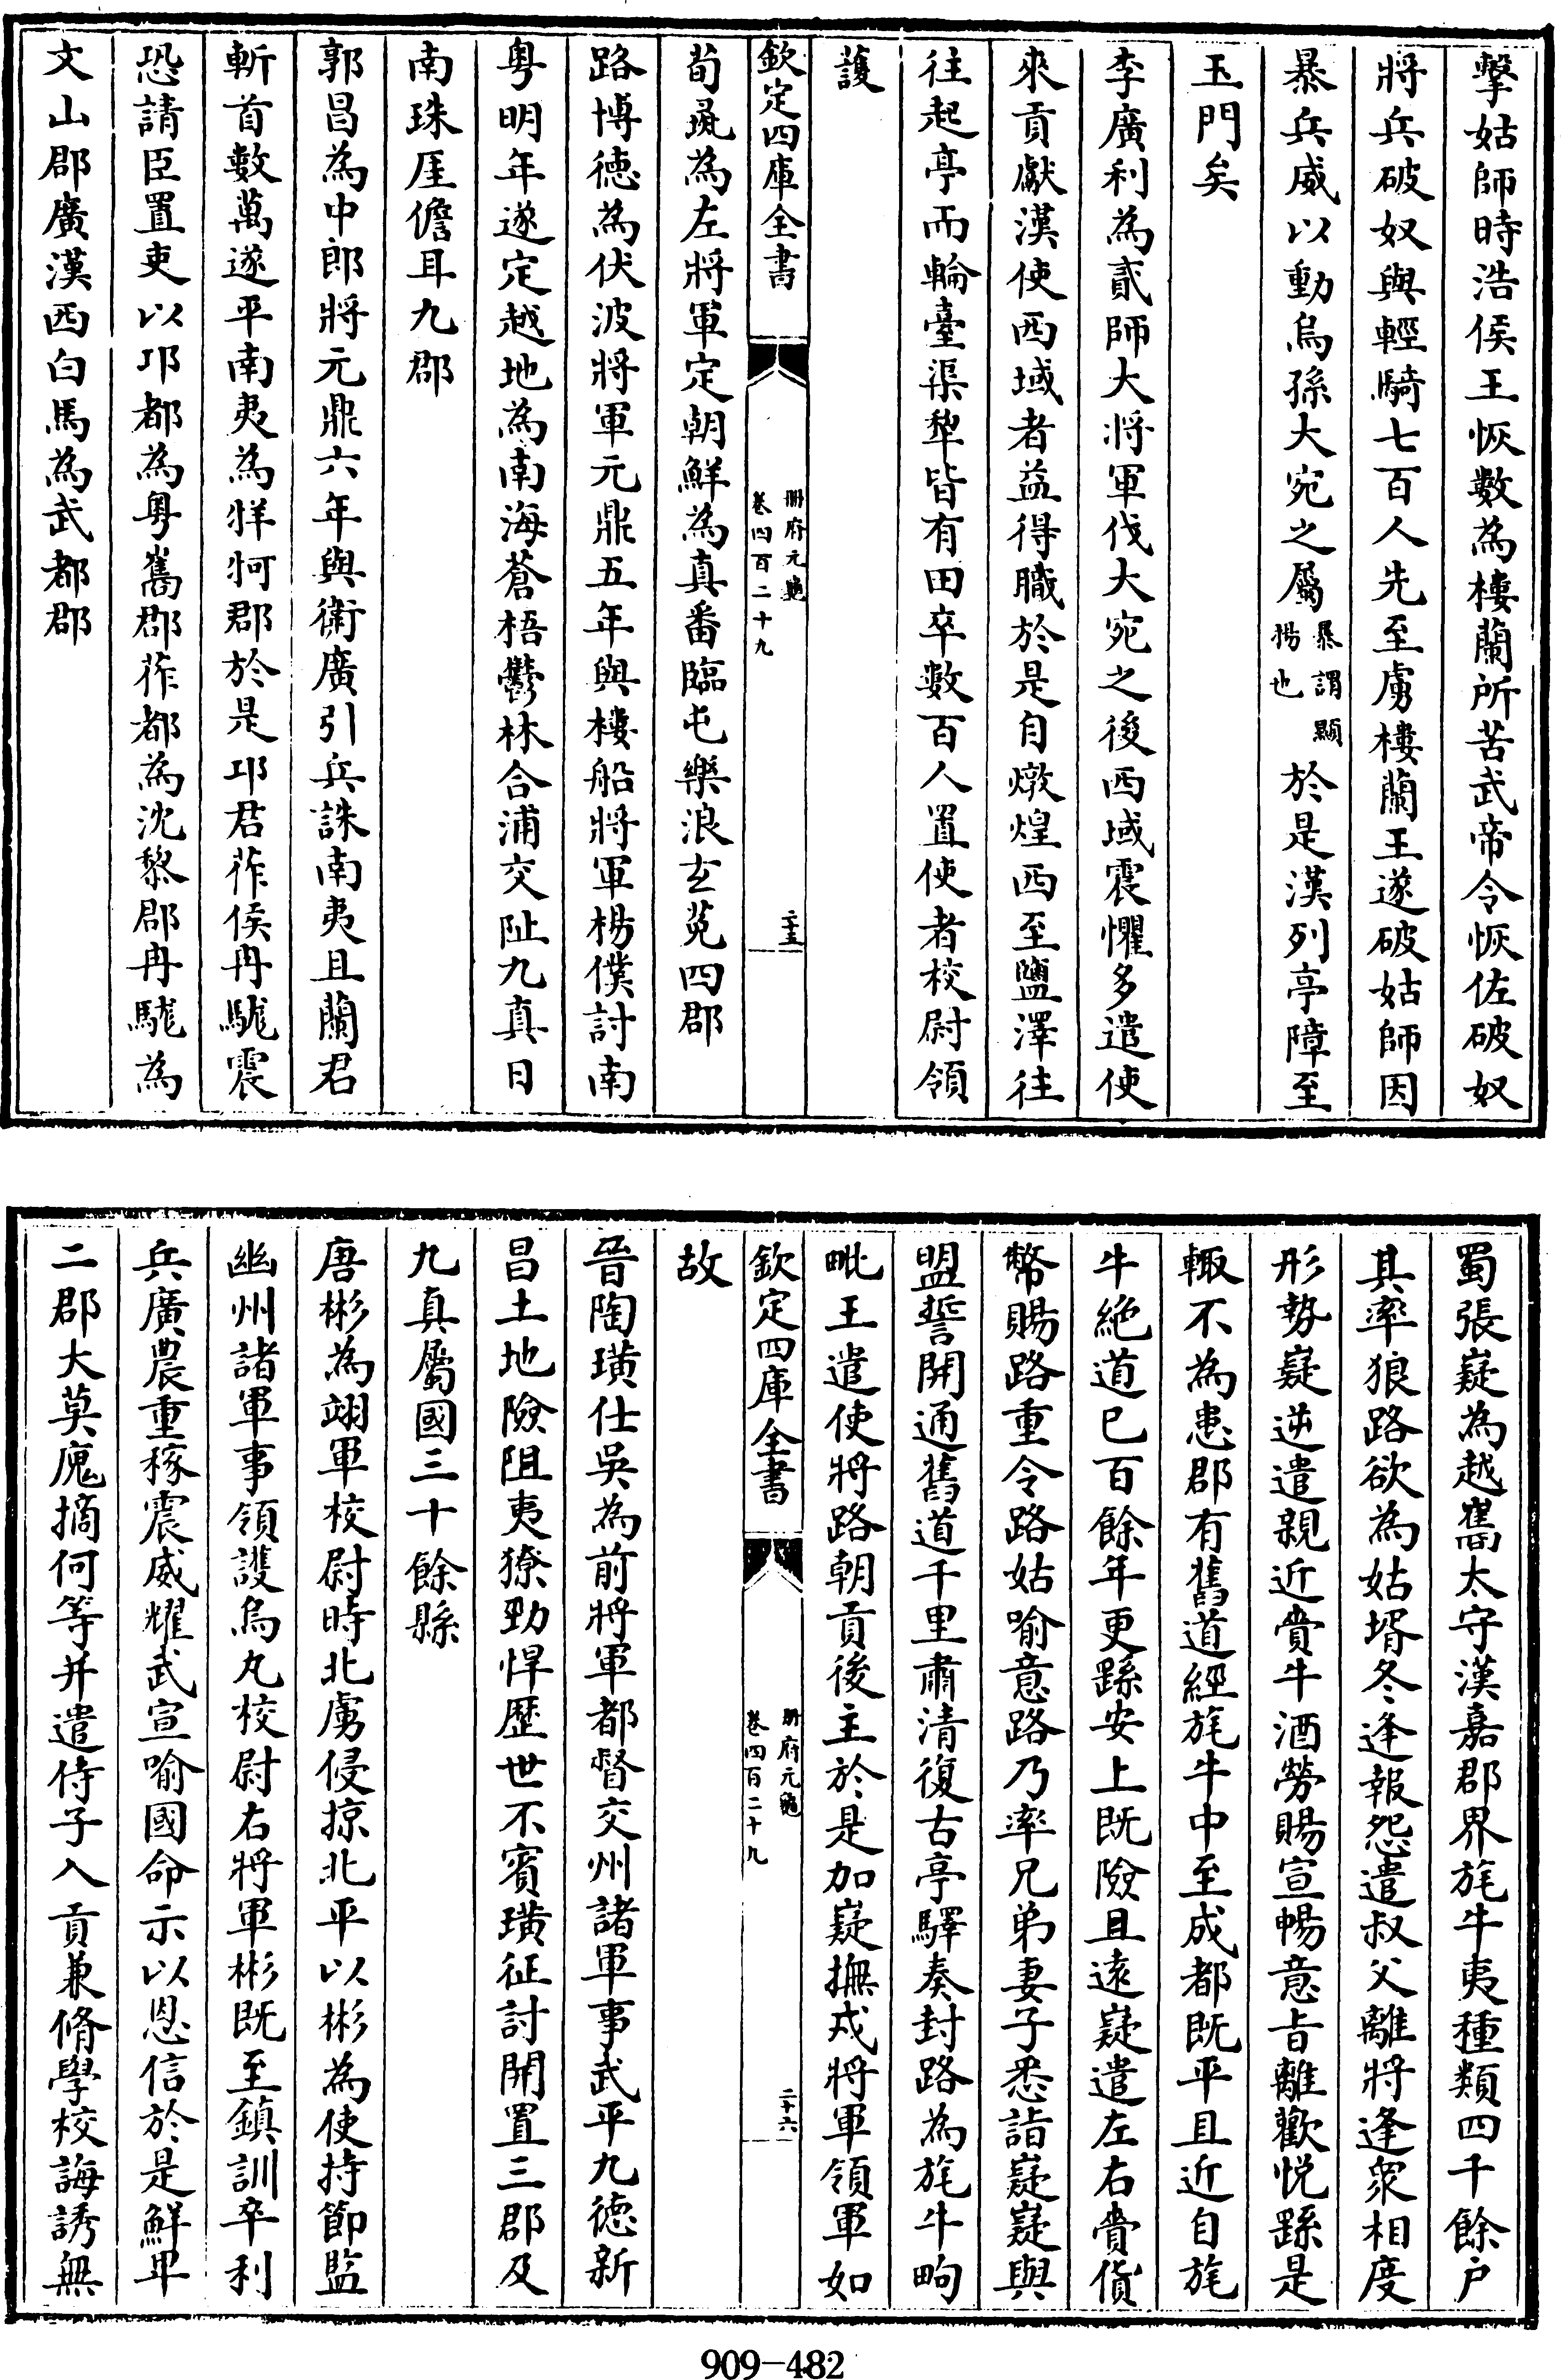 擊姑師時浩侯王恢數為樓蘭所苦武帝令恢佐破奴
將兵破奴與輕騎七百人先至虜樓蘭王遂破姑師因
暴兵威以動烏孫大宛之屬暴謂顯揚也於是漢列亭障至
玉門矣
李廣利為貳師大將軍伐大宛之後西域震懼多遣使
來貢獻漢使西域者益得職於是自燉煌西至鹽澤往
往起亭而輪臺渠犂皆有田卒數百人置使者校尉領
護
欽定四庫全書
冊府元龜
卷四百二十九
二十五
荀彘為左將軍定朝鮮為真番臨屯樂浪玄菟四郡
路博德為伏波將軍元鼎五年與樓船將軍楊僕討南
粵明年遂定越地為南海蒼梧鬱林合浦交阯九真日
南珠厓儋耳九郡
郭昌為中郎將元鼎六年與衛廣引兵誅南夷且蘭君
斬首數萬遂平南夷為牂牁郡於是邛君莋侯冉駹震
恐請臣置吏以邛都為粵巂郡莋都為沈黎郡冉駹為
文山郡廣漢西白馬為武都郡
蜀張嶷為越巂太守漢嘉郡界旄牛夷種類四千餘戶
其率狼路欲為姑壻冬逢報怨遣叔父離將逢衆相度
形勢嶷逆遣親近賫牛酒勞賜宣暢意旨離歡悅繇是
輙不為患郡有舊道經旄牛中至成都既平且近自旄
牛絶道已百餘年更繇安上既險且遠嶷遣左右賫貨
幣賜路重令路姑喻意路乃率兄弟妻子悉詣嶷嶷與
盟誓開通舊道千里肅清復古亭驛奏封路為旄牛㽛
毗王遣使將路朝貢後主於是加嶷撫戎將軍領軍如
欽定四庫全書
冊府元龜
卷四百二十九
二十六
故
晉陶璜仕吳為前將軍都督交州諸軍事武平九德新
昌土地險阻夷獠勁悍歷世不賓璜征討開置三郡及
九真屬國三十餘縣
唐彬為翊軍校尉時北虜侵掠北平以彬為使持節監
幽州諸軍事領護烏丸校尉右將軍彬既至鎮訓卒利
兵廣農重稼震威耀武宣喻國命示以恩信於是鮮卑
二郡大莫廆摘何等并遣侍子入貢兼脩學校誨誘無
909-482